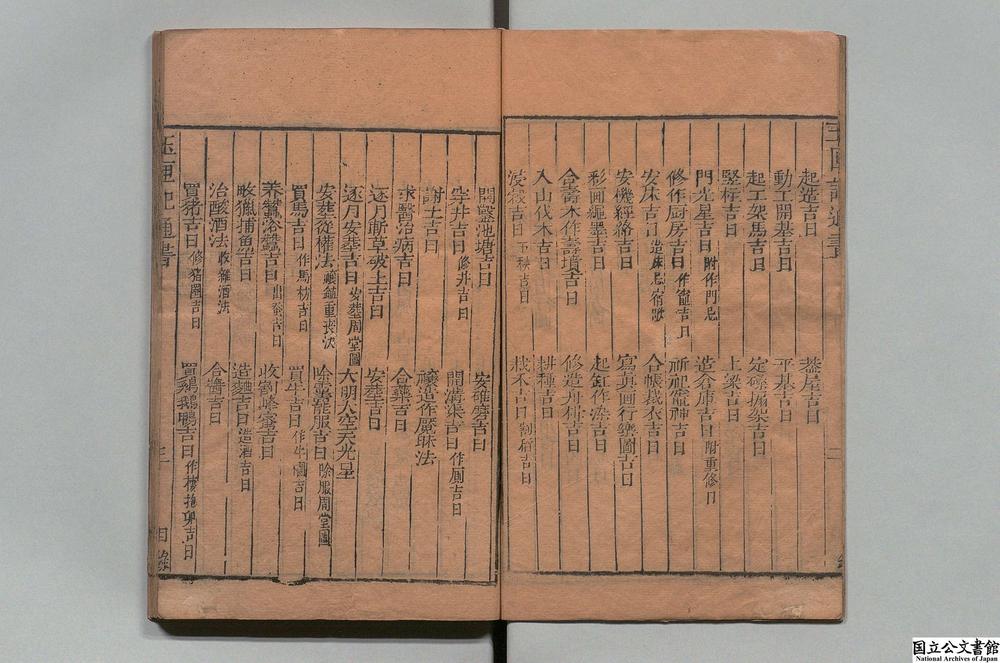 起造吉日 蓋屋吉日
動工開基吉日 平基吉日
起工架馬吉日 定磉搧架吉日
竪柱吉日 上梁吉日
門光星吉日 附作門忌 造倉庫吉日 附重修日
修作厨房吉日 作竈吉日 祈祀竈神吉日
安床吉日 造床忌宿歌 合帳裁衣吉日
安機經絡吉日 寫真画行樂圖吉日
彩画繩墨吉日 起缸作染吉日
合壽木作壽墳吉日 修造舟楫吉日
入山伐木吉日 耕種吉日
浸榖吉日 下秧吉日 栽禾吉日 割禾吉日
開鑿池塘吉日 安碓磨吉日
穿井吉日 修井吉日 開溝渠吉日 作厠吉日
謝土吉日 禳造作魘昧法
求醫治病吉日 合藥吉日
逐月斬草破土吉日 安葬吉日
逐月安葬吉日 安葬周堂圖 大明大空天光星
安葬從權法 禳鎮重喪法 除靈脫服吉日 除服周堂圖
買馬吉日 作馬枋吉日 買牛吉日 作牛欄吉日
養蠶浴蠶吉日 出蚕吉日 收割蜂蜜吉日
畋獵捕魚吉日 造麯吉日 造酒吉日
治酸酒法 收雜酒法 合醬吉日
買猪吉日 修猪圈吉日 買鷄鵝鴨吉日 作棲抱卵吉日
三
目錄
国立公文書館
National Archives of Japan